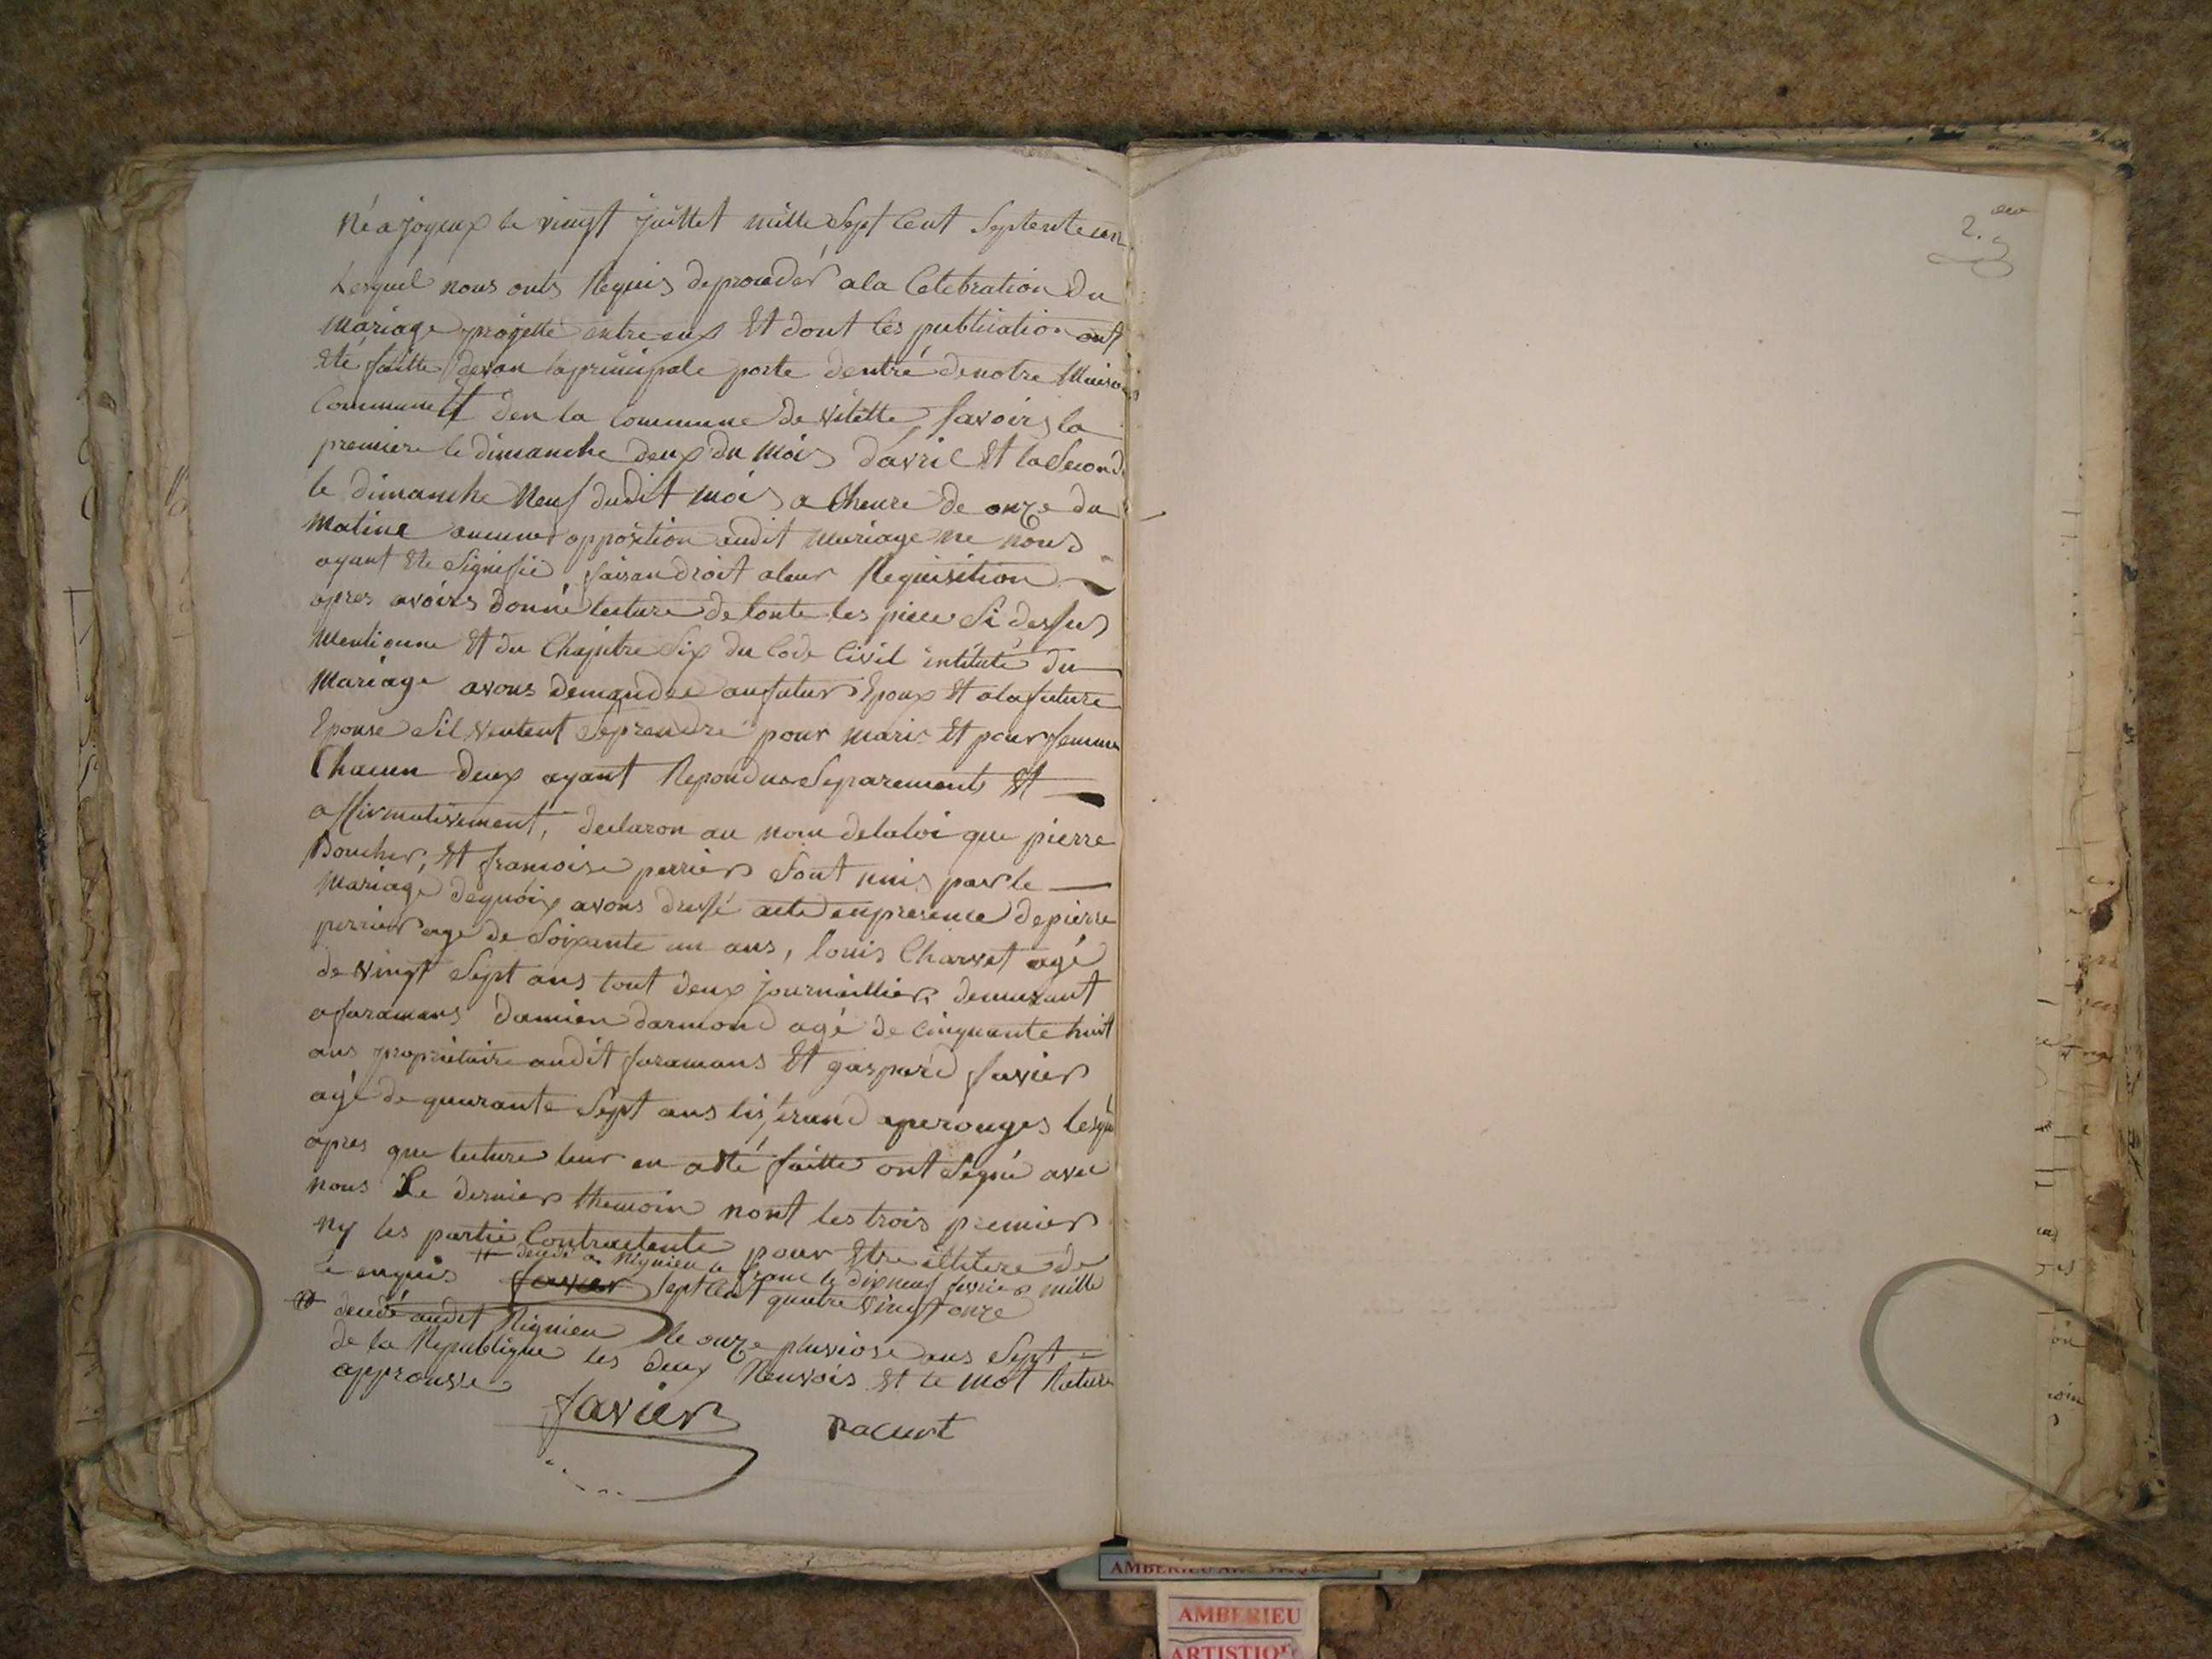 Né a joyeux le vingt juillet mille Sept Cent Septente un
Lesquel nous onts Requis de proceder a la Celebration du
Mariage projetté entre eux Et dont les publication ont
Eté faitte devan la principale porte dentré de notre Maison
Commune Et den la Commune de Vilette, Savoirs la
premiere le dimanche deux du Mois davril Et la Second
le dimanche Neuf dudit mois a lheure de onze du
Matine aucune opposition audit Mariage ne nous
ayant Eté Signifié, faisan droit a leur Requisition
apres avoirs donné lecture de toute les piece Si dessus
Mentionne Et du Chapitre Six du Code Civil intitulé du
Mariage avons demandée au futur Epoux Et a la future
Epouse Sil veulent Se prendre pour Maris Et pour femme
Chacun deux ayant Repondus Separements Et
affirmativement, declaron au nom de la loi que pierre
Boucher, Et francoise perrier Sont unis par le
Mariagé dequoix avons dressé acte en presence de pierre
perrier age de Soixente un ans, louis Charvet agé
de vingt Sept ans tout deux journaillier demurant
a faramans damien darmond agé de cinquante huit
ans propriétaire audit faramans Et gaspard favier
agé de quarante Sept ans tisserand a perouges lesqu
apres que lecture leur en a Eté faitte ont Signé avec
nous Le dernier themoin nont les trois premier
ny les partie Contractente pour Etre illitere de
ce enquis favier
# decedé a Rignieu le franc le dixneuf fevrier mille
Sept Cent quatre vingt onze
# decedé audit Rignieu le onze pluviose ans Sept
de la Republique les deux Renvois Et le mot Rature
approuvé
favier
Pacurt
2.
AMBERIEU
AMBERIEU
ARTISTIQ